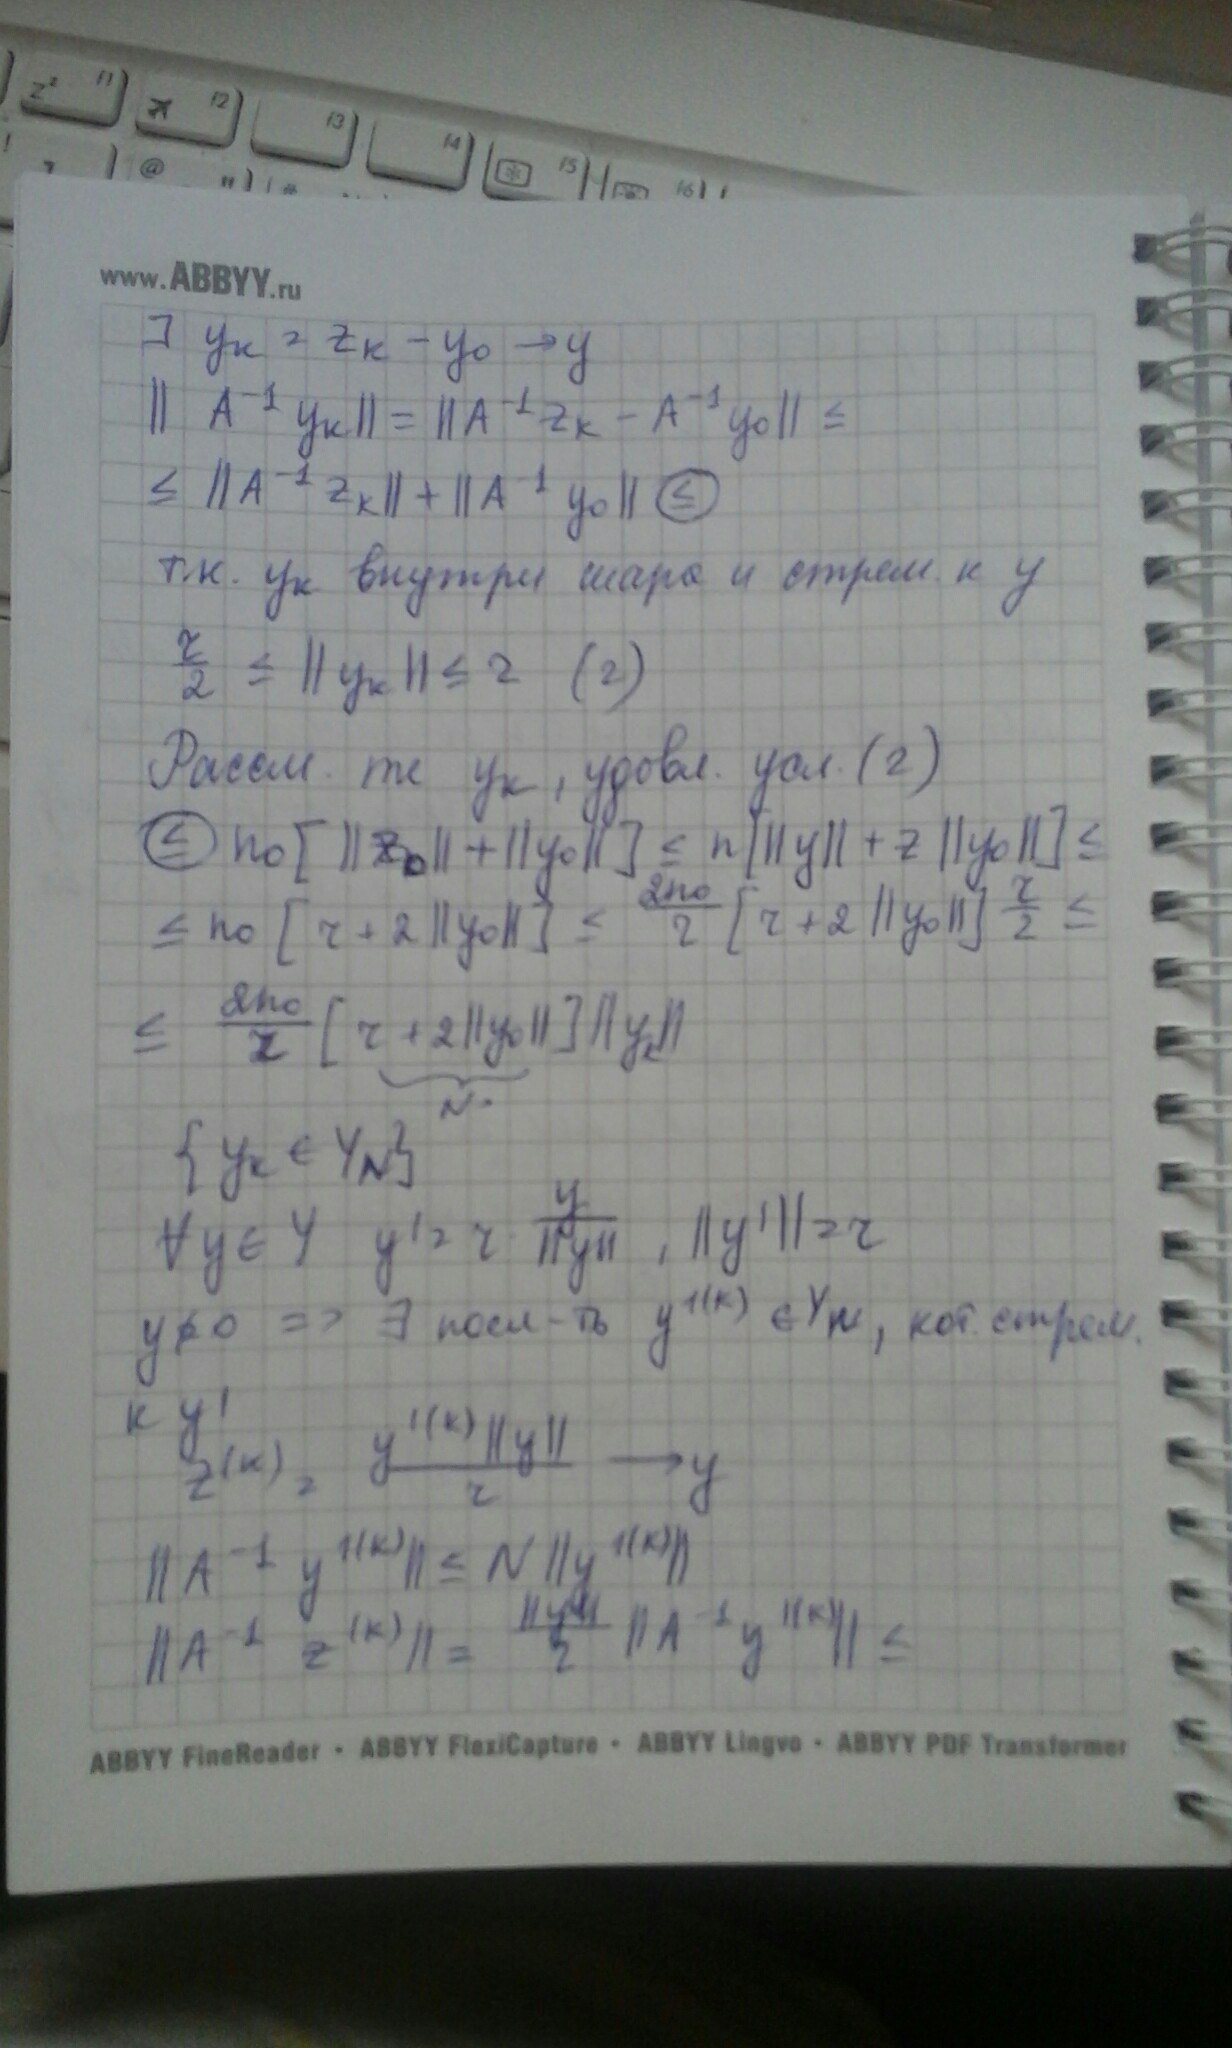 z² 11 я 12 13 14 15 16
@ "
www.ABBYY.ru
∃ yₖ = zₖ - y₀ → y
|| A⁻¹ yₖ|| = ||A⁻¹ zₖ - A⁻¹ y₀|| ≤
≤ ||A⁻¹ zₖ|| + ||A⁻¹ y₀|| ≤
т.к. yₖ внутри шара и стрем. к y
r/2 ≤ || yₖ || ≤ r (2)
Рассм. те yₖ, удовл. усл. (2)
≤ n₀[ ||z₀|| + ||y₀|| ] ≤ n[||y|| + 2 ||y₀|| ] ≤
≤ n₀ [ r + 2 ||y₀|| ] ≤ 2n₀/r [ r + 2 ||y₀|| ] r/2 ≤
≤ 2n₀/r [ r + 2||y₀|| ] ||yₖ||
N
{ yₖ ∈ Y_N }
∀y ∈ Y y' = r y/||y|| , ||y'|| = r
y ≠ 0 => ∃ посл-ть y'⁽ᵏ⁾ ∈ Y_N, кот. стрем.
к y'
z⁽ᵏ⁾ = y'⁽ᵏ⁾||y||/r → y
||A⁻¹ y'⁽ᵏ⁾|| ≤ N ||y'⁽ᵏ⁾||
||A⁻¹ z⁽ᵏ⁾|| = ||y||/r ||A⁻¹ y'⁽ᵏ⁾|| ≤
ABBYY FineReader • ABBYY FlexiCapture • ABBYY Lingvo • ABBYY PDF Transformer